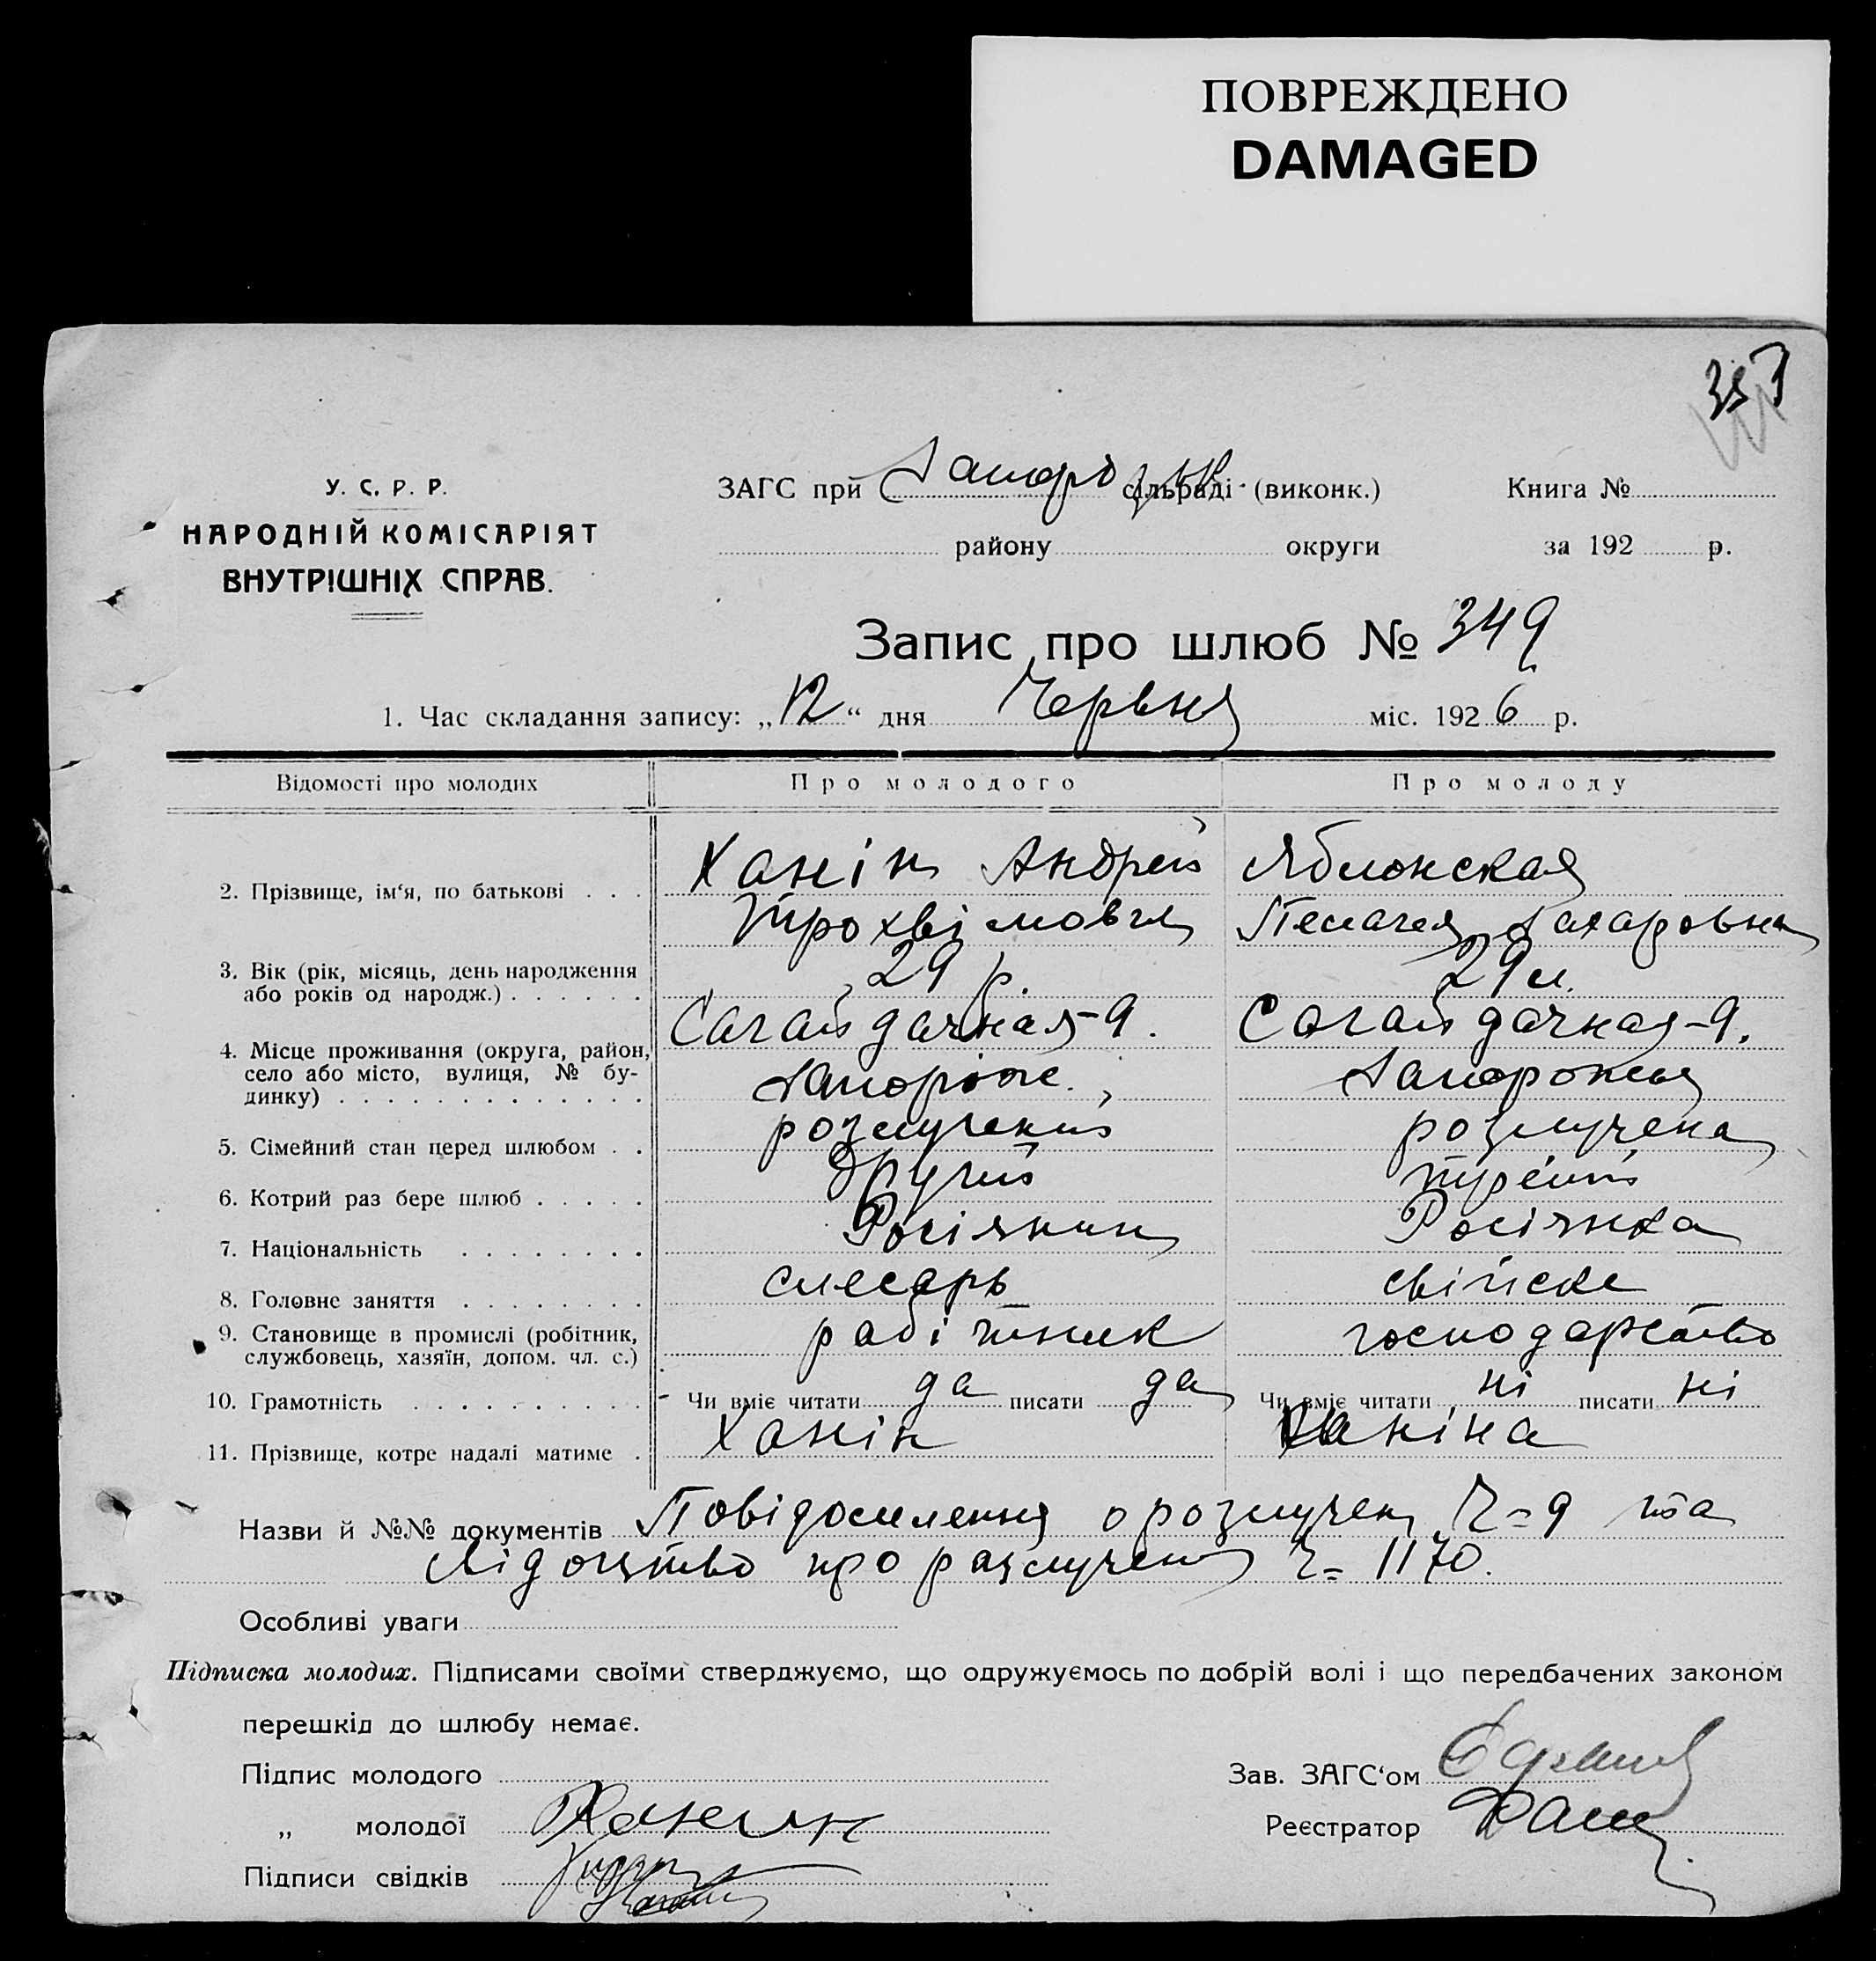 ПОВРЕЖДЕНО
DAMAGED
У. С. Р. Р.
НАРОДНІЙ КОМІСАРІЯТ
ВНУТРІШНІХ СПРАВ.
ЗАГС при Запорізьк. сільраді (виконк.) Книга №
району округи за 192 р.
Запис про шлюб № 349
1. Час складання запису: „12“ дня Червня міс. 1926 р.
Відомості про молодих Про молодого Про молоду
2. Прізвище, ім‘я, по батькові Ханін Андрей Яблонская
Трохвімович Пелагея Захаровна
3. Вік (рік, місяць, день народження або років од народж.) 29 р. 29 л.
4. Місце проживання (округа, район, село або місто, вулиця, № будинку) Сагайдачная-9. Сагайдачная-9.
Запоріже. Запорожья
5. Сімейний стан перед шлюбом розлучений розлучена
6. Котрий раз бере шлюб другий третій
7. Національність Росіянин Росіянка
8. Головне заняття слесарь свійске
9. Становище в промислі (робітник, службовець, хазяїн, допом. чл. с.) рабітник господарство
10. Грамотність Чи вміє читати да писати да Чи вміє читати ні писати ні
11. Прізвище, котре надалі матиме Ханін Ханіна
Назви й №№ документів Повідомлення о розлучен Ч=9 та
свідоцтво про разлучен ч= 1170.
Особливі уваги
Підписка молодих. Підписами своїми стверджуємо, що одружуємось по добрій волі і що передбачених законом
перешкід до шлюбу немає.
Підпис молодого Зав. ЗАГС‘ом
„ молодої Ханин Реєстратор
Підписи свідків